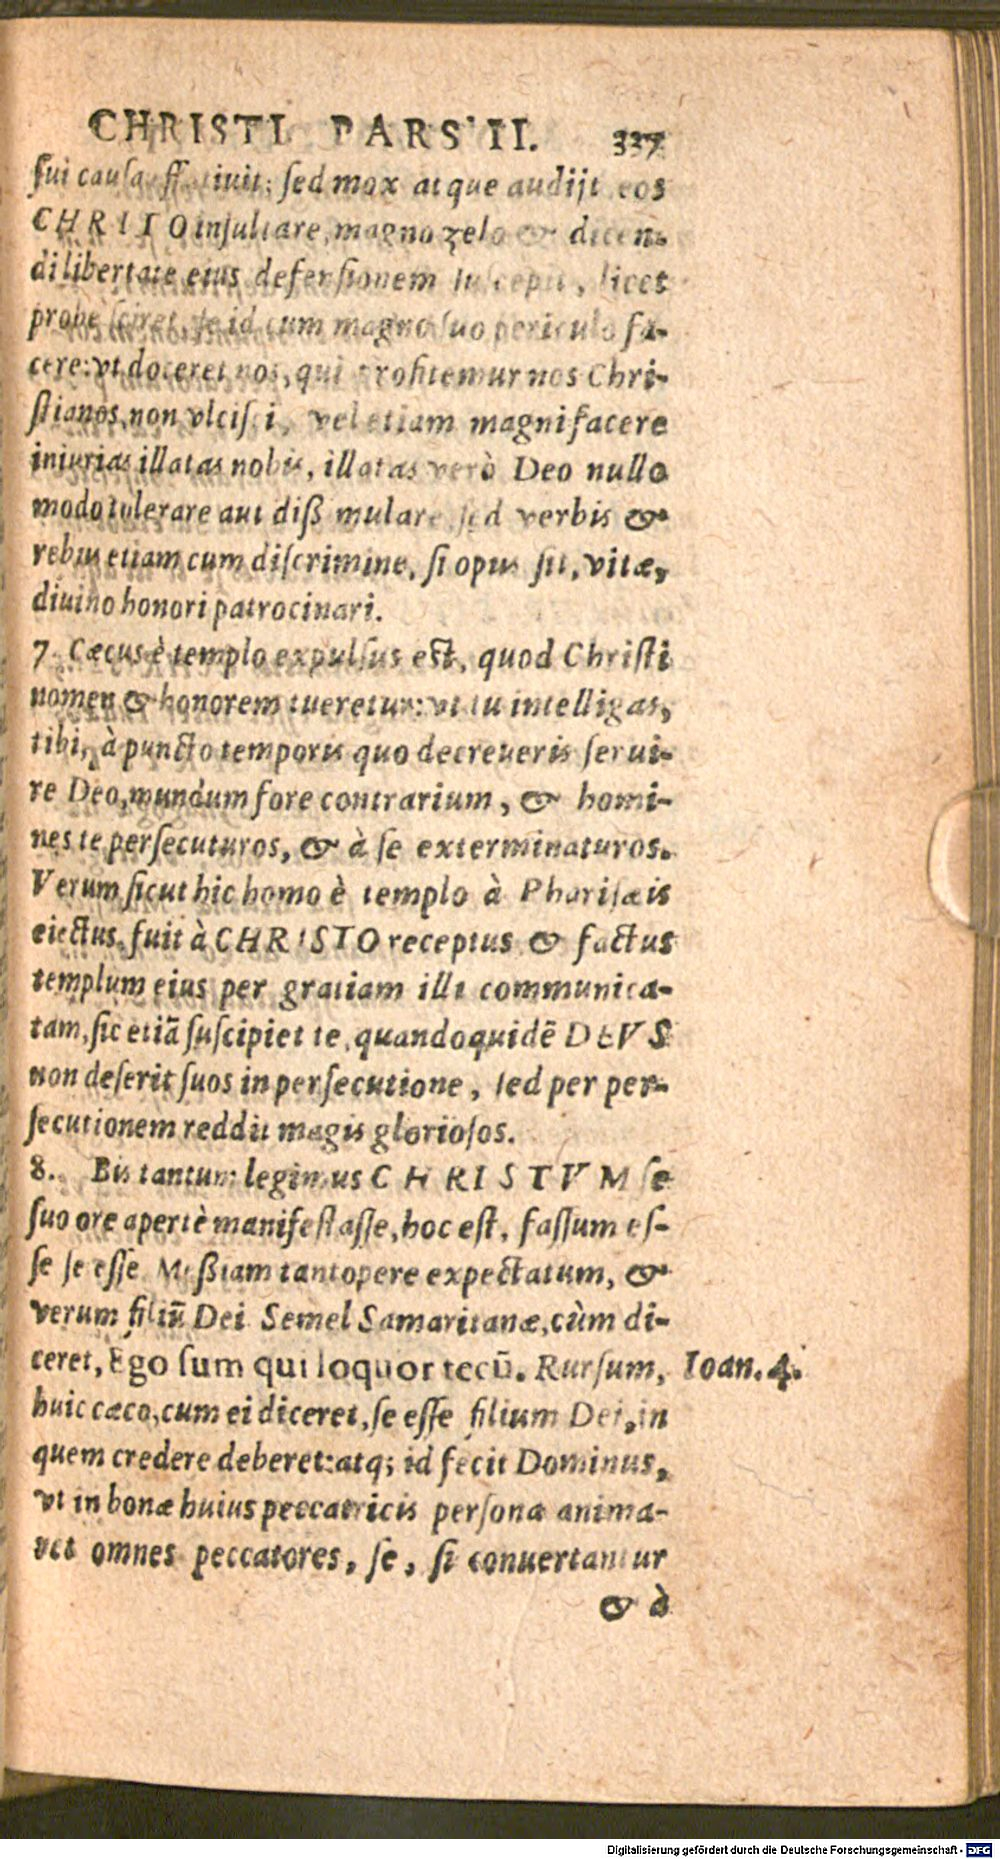 CHRISTI PARS II. 337
sui causa iuit; sed mox atque audijt eos
CHRISTO insultare, magno zelo & dicen-
di libertate eius defensionem suscepit, licet
probe sciret, se id cum magno suo periculo fa-
cere: vt doceret nos, qui profitemur nos Chri-
stianos, non vlcisci, vel etiam magnifacere
iniurias illatas nobis, illatas verò Deo nullo
modo tolerare aut dißimulare sed verbis &
rebus etiam cum discrimine, si opus sit, vitæ,
diuino honori patrocinari.
7 Cæcus è templo expulsus est, quod Christi
nomen & honorem tueretur: vt tu intelligas,
tibi, à puncto temporis quo decreueris serui-
re Deo, mundum fore contrarium, & homi-
nes te persecuturos, & à se exterminaturos.
Verum sicut hic homo è templo à Pharisæis
eiectus, fuit à CHRISTO receptus & factus
templum eius per gratiam illi communica-
tam, sic etiã suscipiet te, quandoquidẽ DEVS
non deserit suos in persecutione, sed per per-
secutionem reddit magis gloriosos.
8. Bis tantum legimus CHRISTVM se
suo ore apertè manifestasse, hoc est, fassum es-
se se esse Meßiam tantopere expectatum, &
verum filiũ Dei. Semel Samaritanæ, cùm di-
ceret, Ego sum qui loquor tecũ. Rursum, Ioan. 4.
huic cæco, cum ei diceret, se esse filium Dei, in
quem credere deberet: atq; id fecit Dominus,
vt in bonæ huius peccatricis persona anima-
ret omnes peccatores, se, si conuertantur
& à
Digitalisierung gefördert durch die Deutsche Forschungsgemeinschaft - DFG